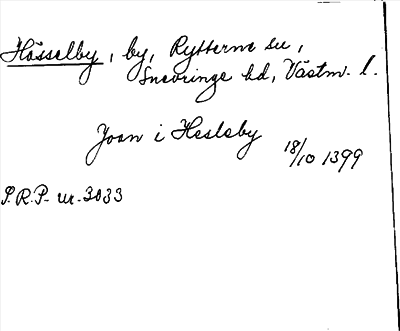 Hässelby, by, Rytterne sn,
Snevringe hd, Västm. l.
Joan i Hesleby 18/10 1399
S.R.P. nr. 3033